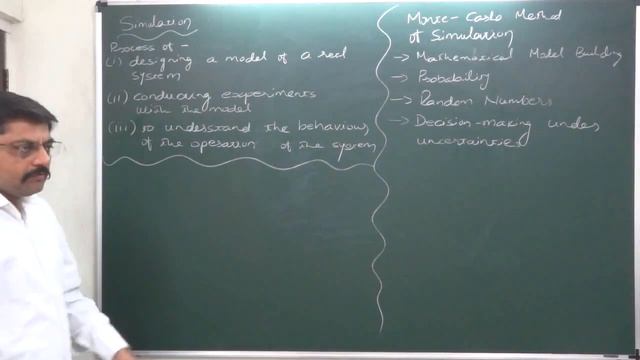 Simulation
Process of -
(i) designing a model of a real
system
(ii) conducting experiments
with the model
(iii) to understand the behaviour
of the operation of the system
Monte-Carlo Method
of Simulation
→ Mathematical Model Building
→ Probability
→ Random Numbers
→ Decision-making under
uncertainties